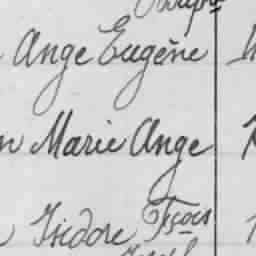 Ange Eugène
n Marie Ange
Isidore Fçois